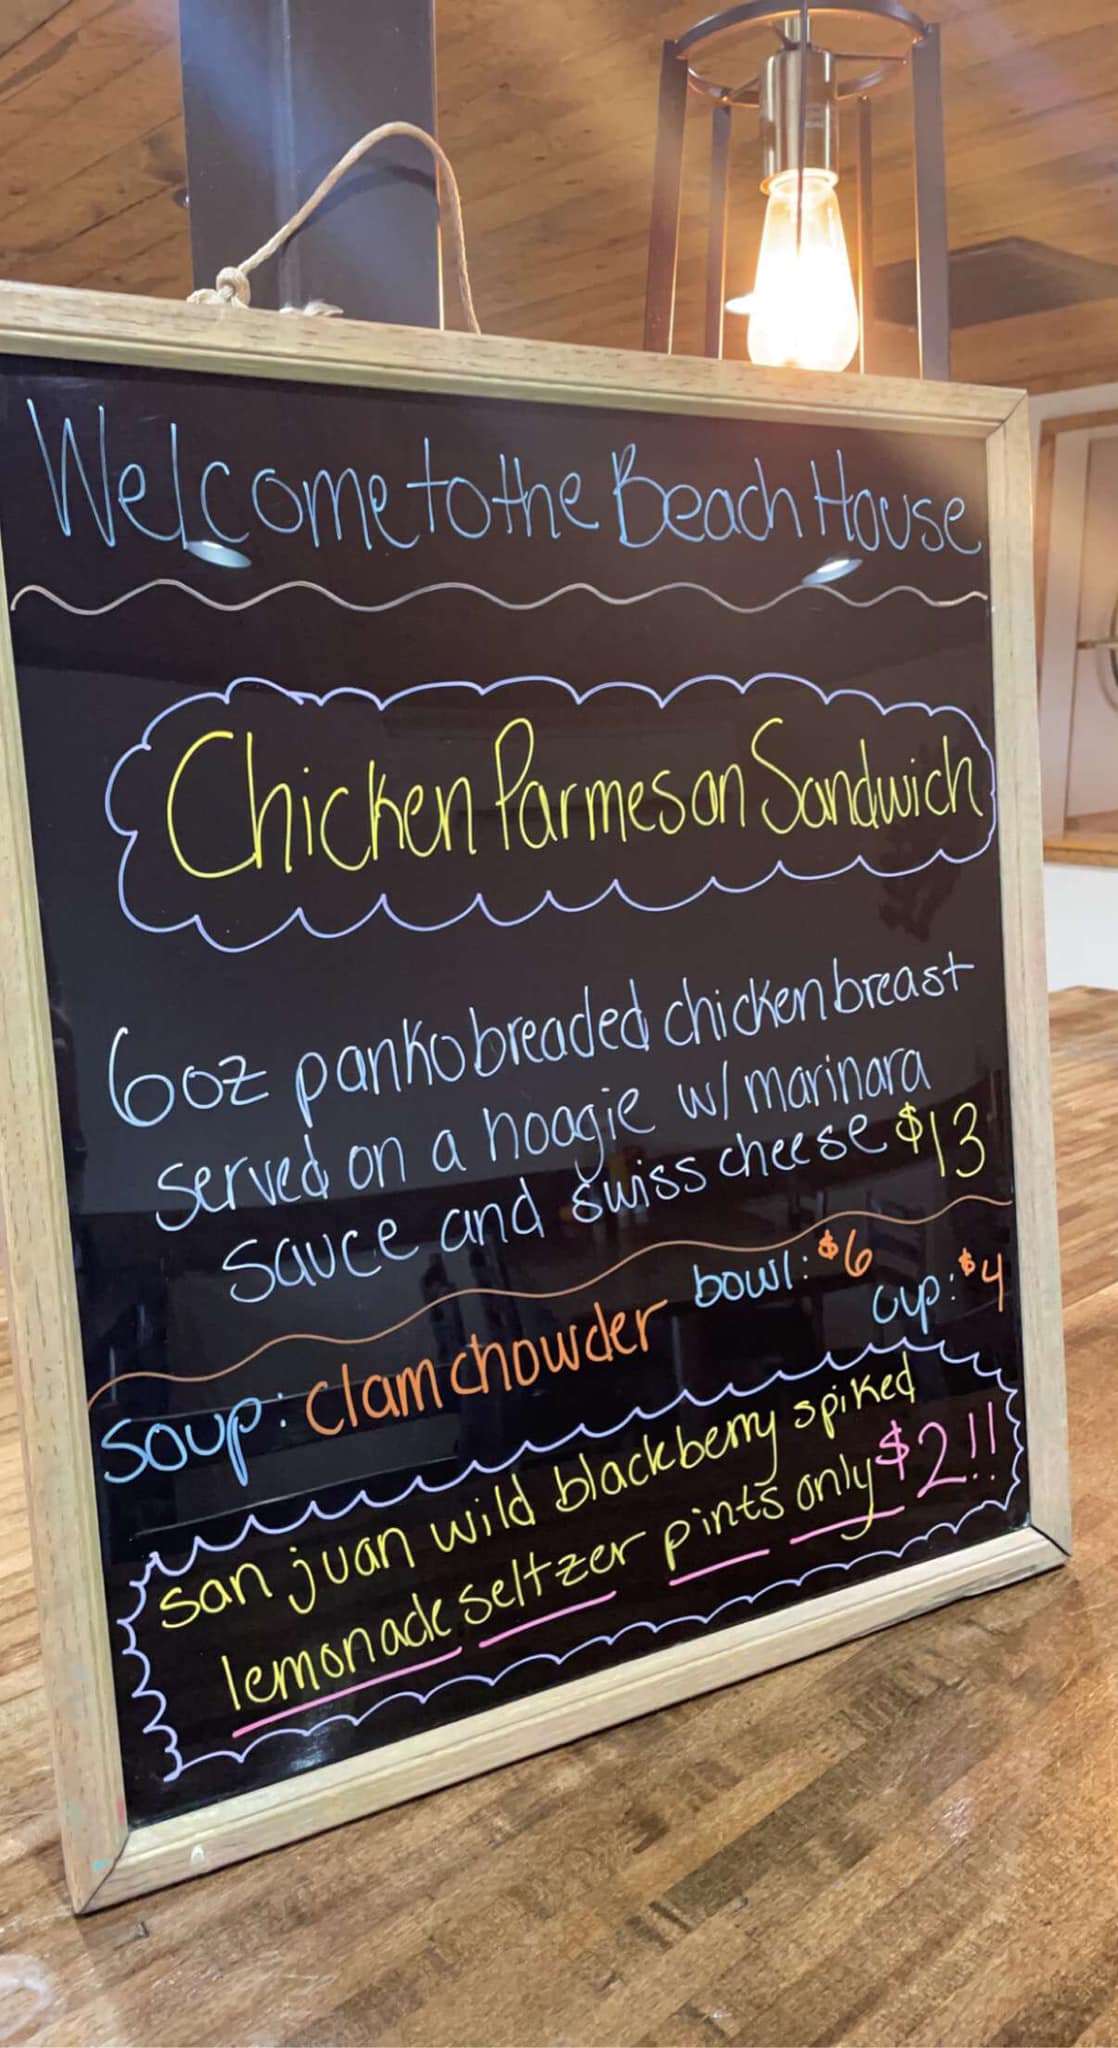 Welcome to the Beach House
Chicken Parmesan Sandwich
6oz panko breaded chicken breast
served on a hoagie w/ marinara
sauce and swiss cheese $13
soup: clam chowder bowl: $6 cup: $4
san juan wild blackberry spiked
lemonade seltzer pints only $2!!